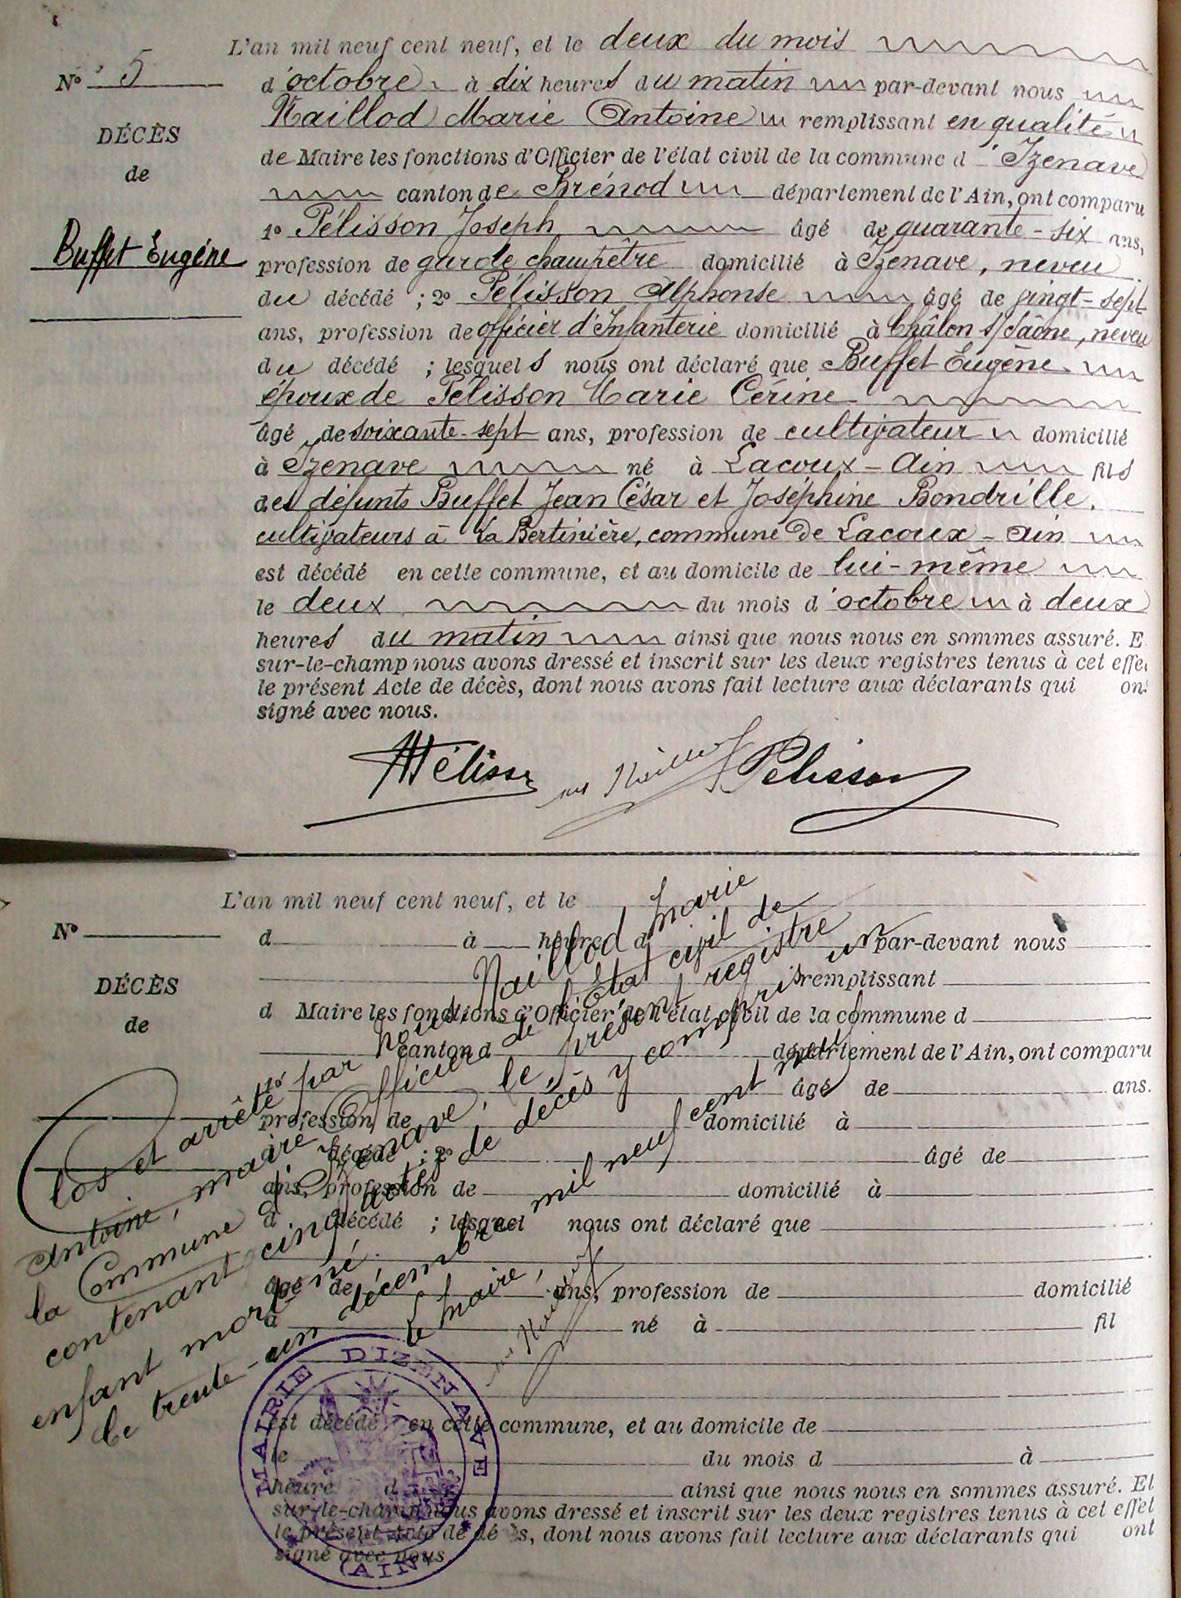 L'an mil neuf cent neuf, et le deux du mois
N° 5
d'octobre à dix heures du matin par-devant nous
DÉCÈS
Naillod Marie Antoine remplissant en qualité
de
de Maire les fonctions d'Officier de l'état civil de la commune d'Izenave
canton de Brénod département de l'Ain, ont comparu
1° Pélisson Joseph âgé de quarante-six ans,
Buffet Eugéne
profession de garde champêtre domicilié à Izenave, neveu
du décédé ; 2° Pélisson Alphonse âgé de vingt-sept
ans, profession de officier d'Infanterie domicilié à Châlon s/Saône, neveu
du décédé ; lesquels nous ont déclaré que Buffet Eugène
époux de Pélisson Marie Cérine
âgé de soixante-sept ans, profession de cultivateur domicilié
à Izenave né à Lacoux-Ain fils
des défunts Buffet Jean César et Joséphine Bondrille,
cultivateurs à la Bertinière, commune de Lacoux-Ain
est décédé en cette commune, et au domicile de lui-même
le deux du mois d'octobre à deux
heures du matin ainsi que nous nous en sommes assuré. E
sur-le-champ nous avons dressé et inscrit sur les deux registres tenus à cet effe
le présent Acte de décès, dont nous avons fait lecture aux déclarants qui on
signé avec nous.
Pélisson
L'an mil neuf cent neuf, et le
N°
d à heure d par-devant nous
DÉCÈS
remplissant
de
d Maire les fonctions d'Officier de l'état civil de la commune d
canton d département de l'Ain, ont comparu
1° âgé de ans.
profession de domicilié à
d décédé ; 2° âgé de
ans, profession de domicilié à
d décédé ; lesquel nous ont déclaré que
âgé de ans, profession de domicilié
à né à fil
est décédé en cette commune, et au domicile de
le du mois d à
heure d ainsi que nous nous en sommes assuré. Et
sur-le-champ nous avons dressé et inscrit sur les deux registres tenus à cet effet
le présent Acte de décès, dont nous avons fait lecture aux déclarants qui ont
signé avec nous
Clos et arrêté par nous Naillod Marie
Antoine, maire Officier de l'État civil de
la Commune d'Izenave, le présent registre
contenant cinq actes de décès y compris un
enfant mort-né.
le trente-un décembre mil neuf cent neuf
Le Maire,
MAIRIE D'IZENAVE
(AIN)